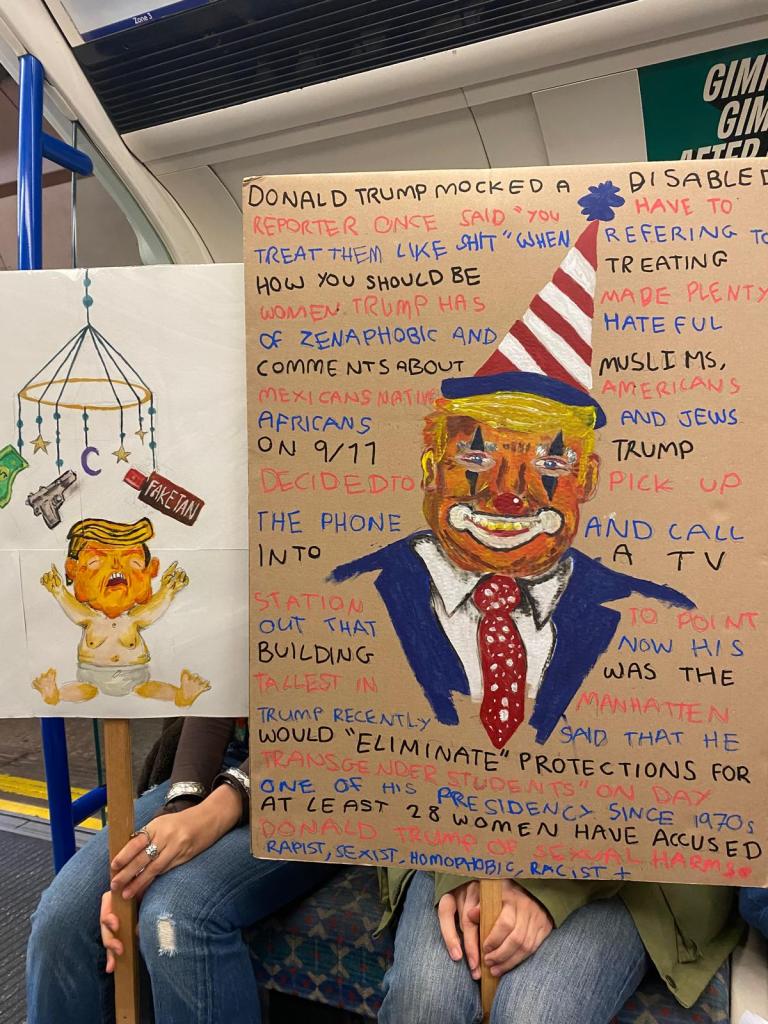 Zone 3
GIM
GIM
AFTER
FAKE TAN
DONALD TRUMP MOCKED A DISABLED
REPORTER ONCE SAID "YOU HAVE TO
TREAT THEM LIKE SHIT" WHEN REFERING TO
HOW YOU SHOULD BE TREATING
WOMEN. TRUMP HAS MADE PLENTY
OF ZENAPHOBIC AND HATEFUL
COMMENTS ABOUT MUSLIMS,
MEXICANS NATIVE AMERICANS
AFRICANS AND JEWS
ON 9/11 TRUMP
DECIDED TO PICK UP
THE PHONE AND CALL
INTO A TV
STATION TO POINT
OUT THAT NOW HIS
BUILDING WAS THE
TALLEST IN MANHATTEN
TRUMP RECENTLY SAID THAT HE
WOULD "ELIMINATE" PROTECTIONS FOR
TRANSGENDER STUDENTS" ON DAY
ONE OF HIS PRESIDENCY SINCE 1970s
AT LEAST 28 WOMEN HAVE ACCUSED
DONALD TRUMP OF SEXUAL HARMS.
RAPIST, SEXIST, HOMOPHOBIC, RACIST +